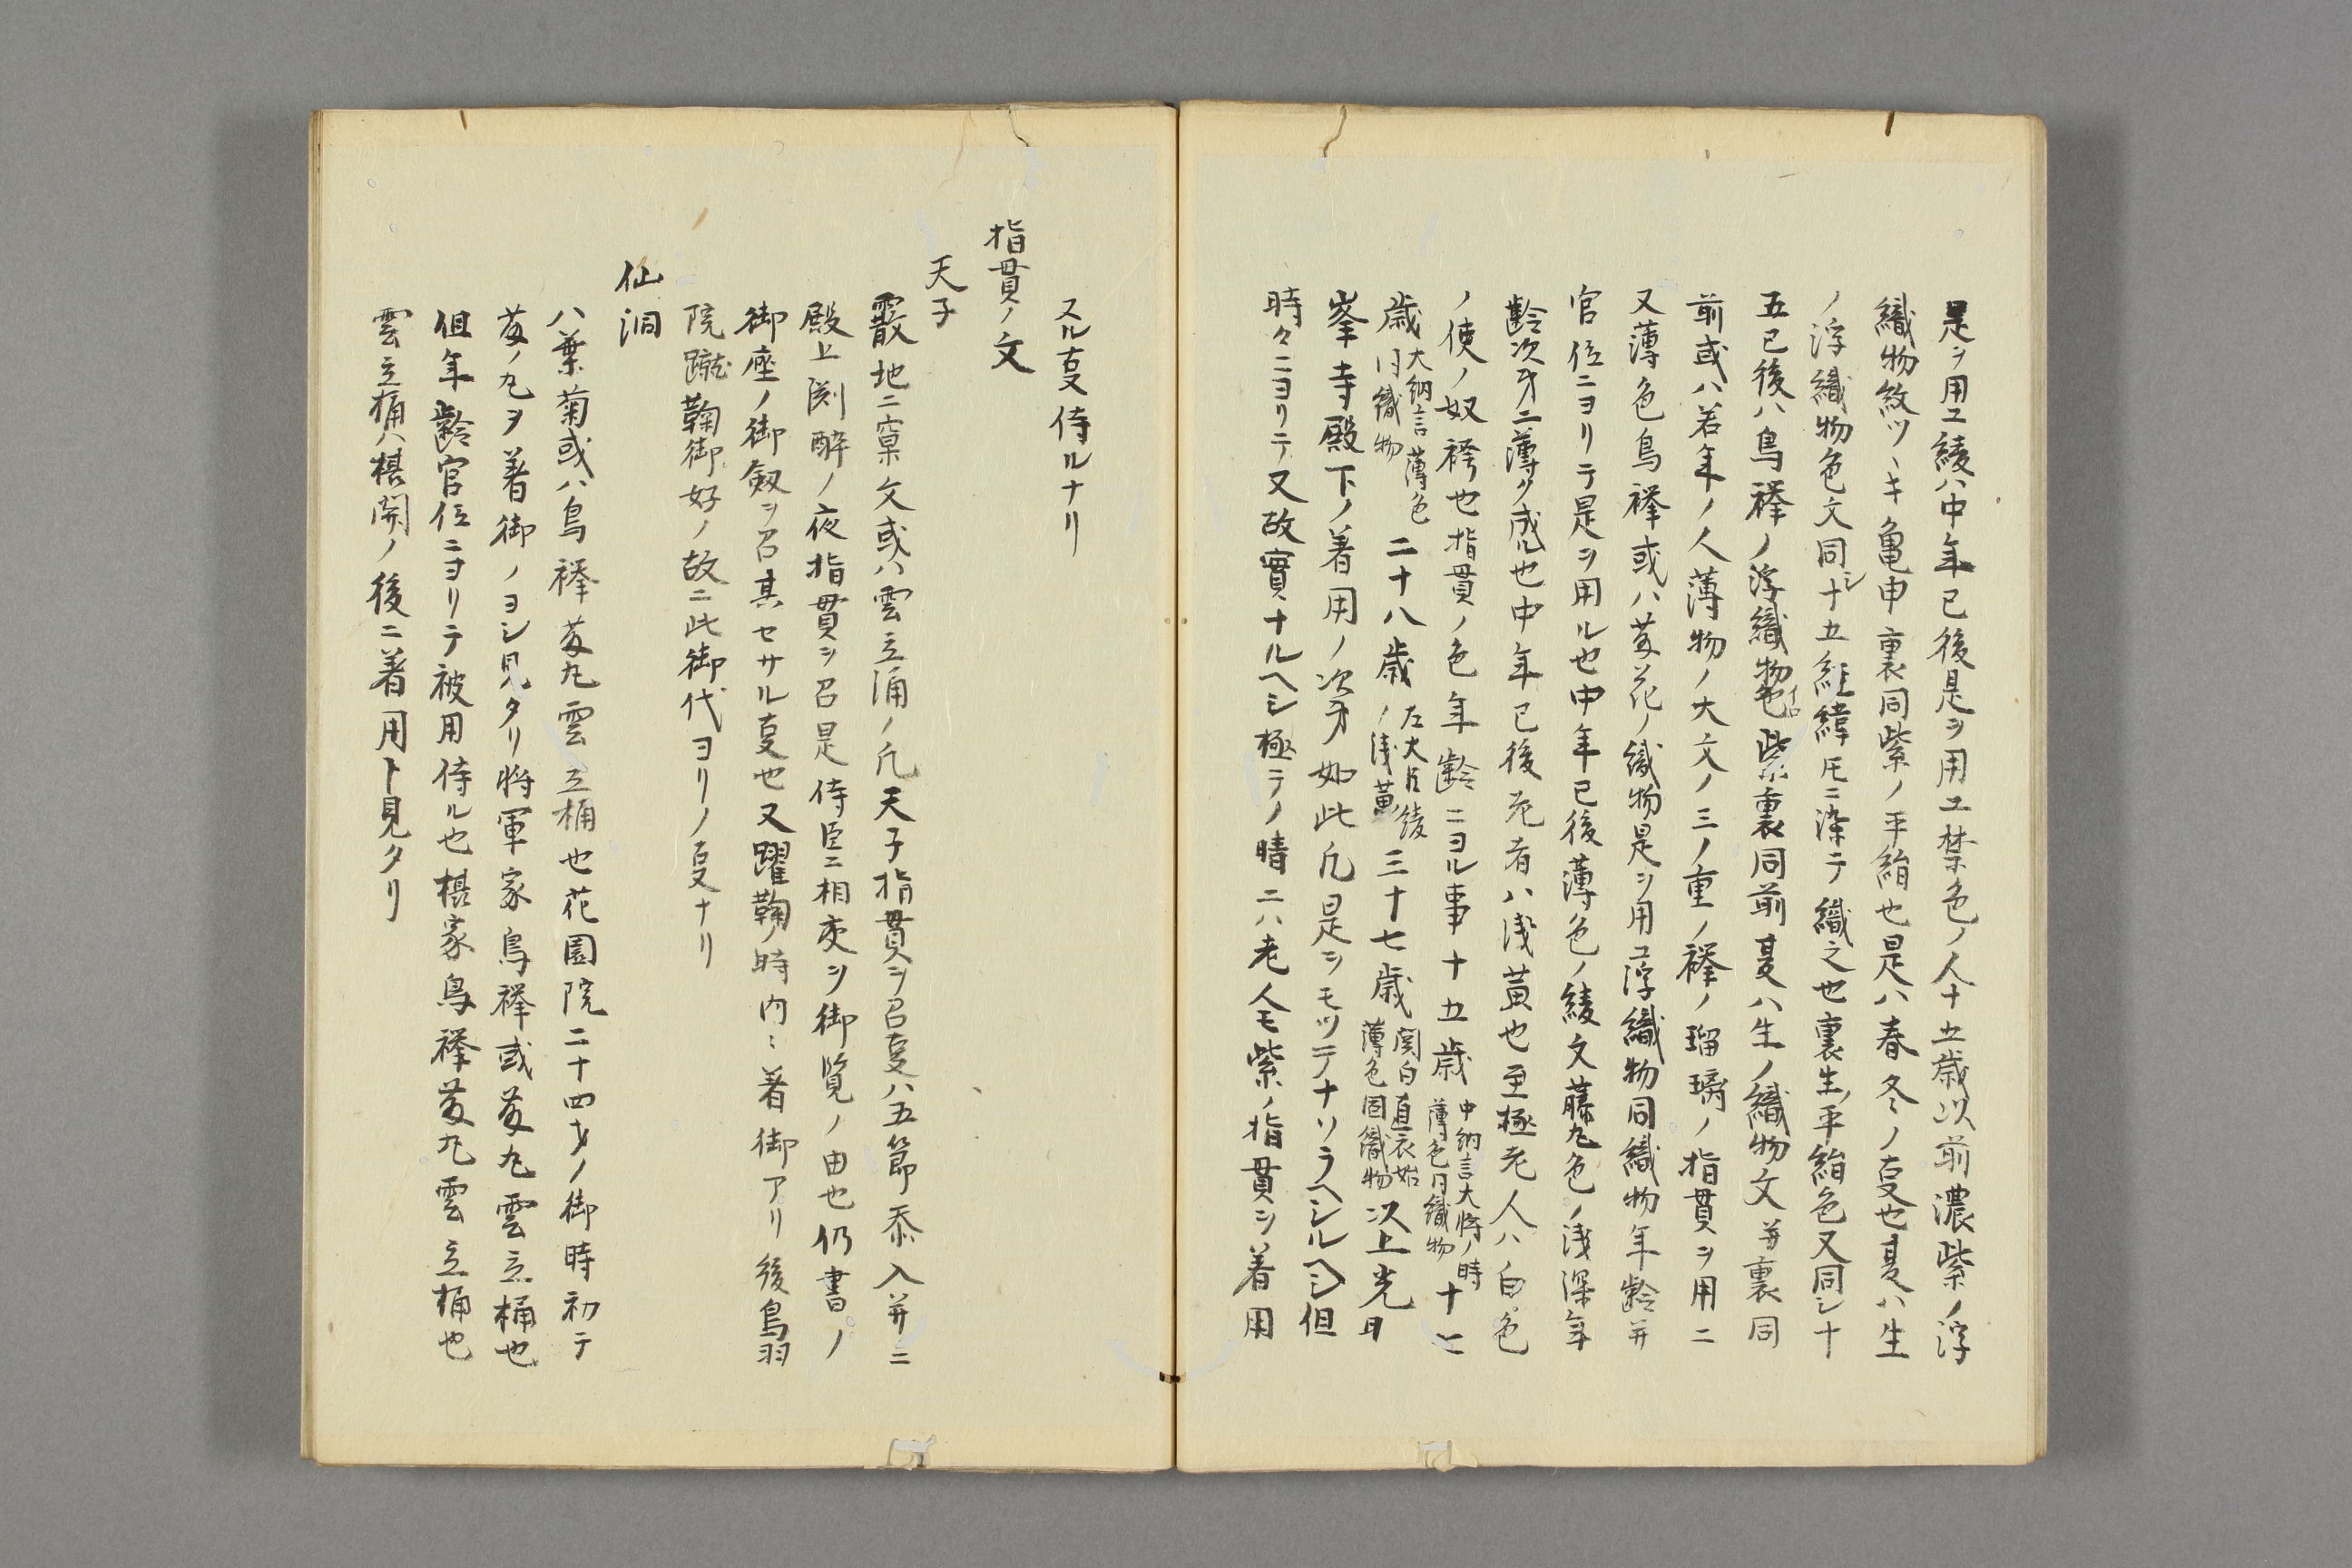 是ヲ用ユ綾ハ中年已後是ヲ用ユ禁色ノ人十五歳以前濃紫ノ浮
織物紋ツヽキ亀甲裏同紫ノ平絹也是ハ春冬ノ事也夏ハ生
ノ浮織物色文同シ十五経緯モニ染テ織之也裏生ノ平絹色又同シ十
五已後ハ鳥襷ノ浮織物色イロ紫裏同前夏ハ生ノ織物文并裏同
前或ハ若年ノ人薄物ノ大文ノ三ノ重ノ襷ノ瑠璃ノ指貫ヲ用ニ
又薄色鳥襷或ハ藤花ノ織物是ヲ用ユ浮織物同織物年齢并
官位ニヨリテ是ヲ用ル也中年已後薄色ノ綾文藤丸色ノ浅深年
齢次第ニ薄ク成ル也中年已後宿老者ハ浅黄也至極老人ハ白色
ノ使ノ奴袴也指貫ノ色年齢ニヨル事十五歳中納言大将ノ時薄色同織物十七
歳大納言薄色同織物二十八歳ノ左大臣綾浅黄三十七歳関白直衣始薄色固織物次上光明
峯寺殿下ノ着用ノ次第如此凡是ヲモツテナソラヘシルヘシ但
時々ニヨリテ又故實ナルヘシ極テノ晴ニハ老人モ紫ノ指貫ヲ着用
スル事侍ルナリ
指貫ノ文
天子
霰地ニ窠文或ハ雲立涌ノ凡天子指貫ヲ召事ハ五節参入并ニ
殿上渕酔ノ夜指貫ヲ召是侍臣ニ相交ヲ御覧ノ由也仍書ノ
御座ノ御劔ヲ召其セサル事也又躍鞠ノ時内々着御アリ後鳥羽
院蹴鞠御好ノ故ニ此御代ヨリノ事ナリ
仙洞
八葉菊或ハ鳥襷藤丸雲立桶也花園院二十四才ノ御時初テ
藤ノ丸ヲ着御ノヨシ見タリ将軍家鳥襷或藤丸雲立桶也
但年齢官位ニヨリテ被用侍ル也摂家鳥襷藤丸雲立桶也
雲立桶ハ摂関ノ後ニ着用ト見タリ